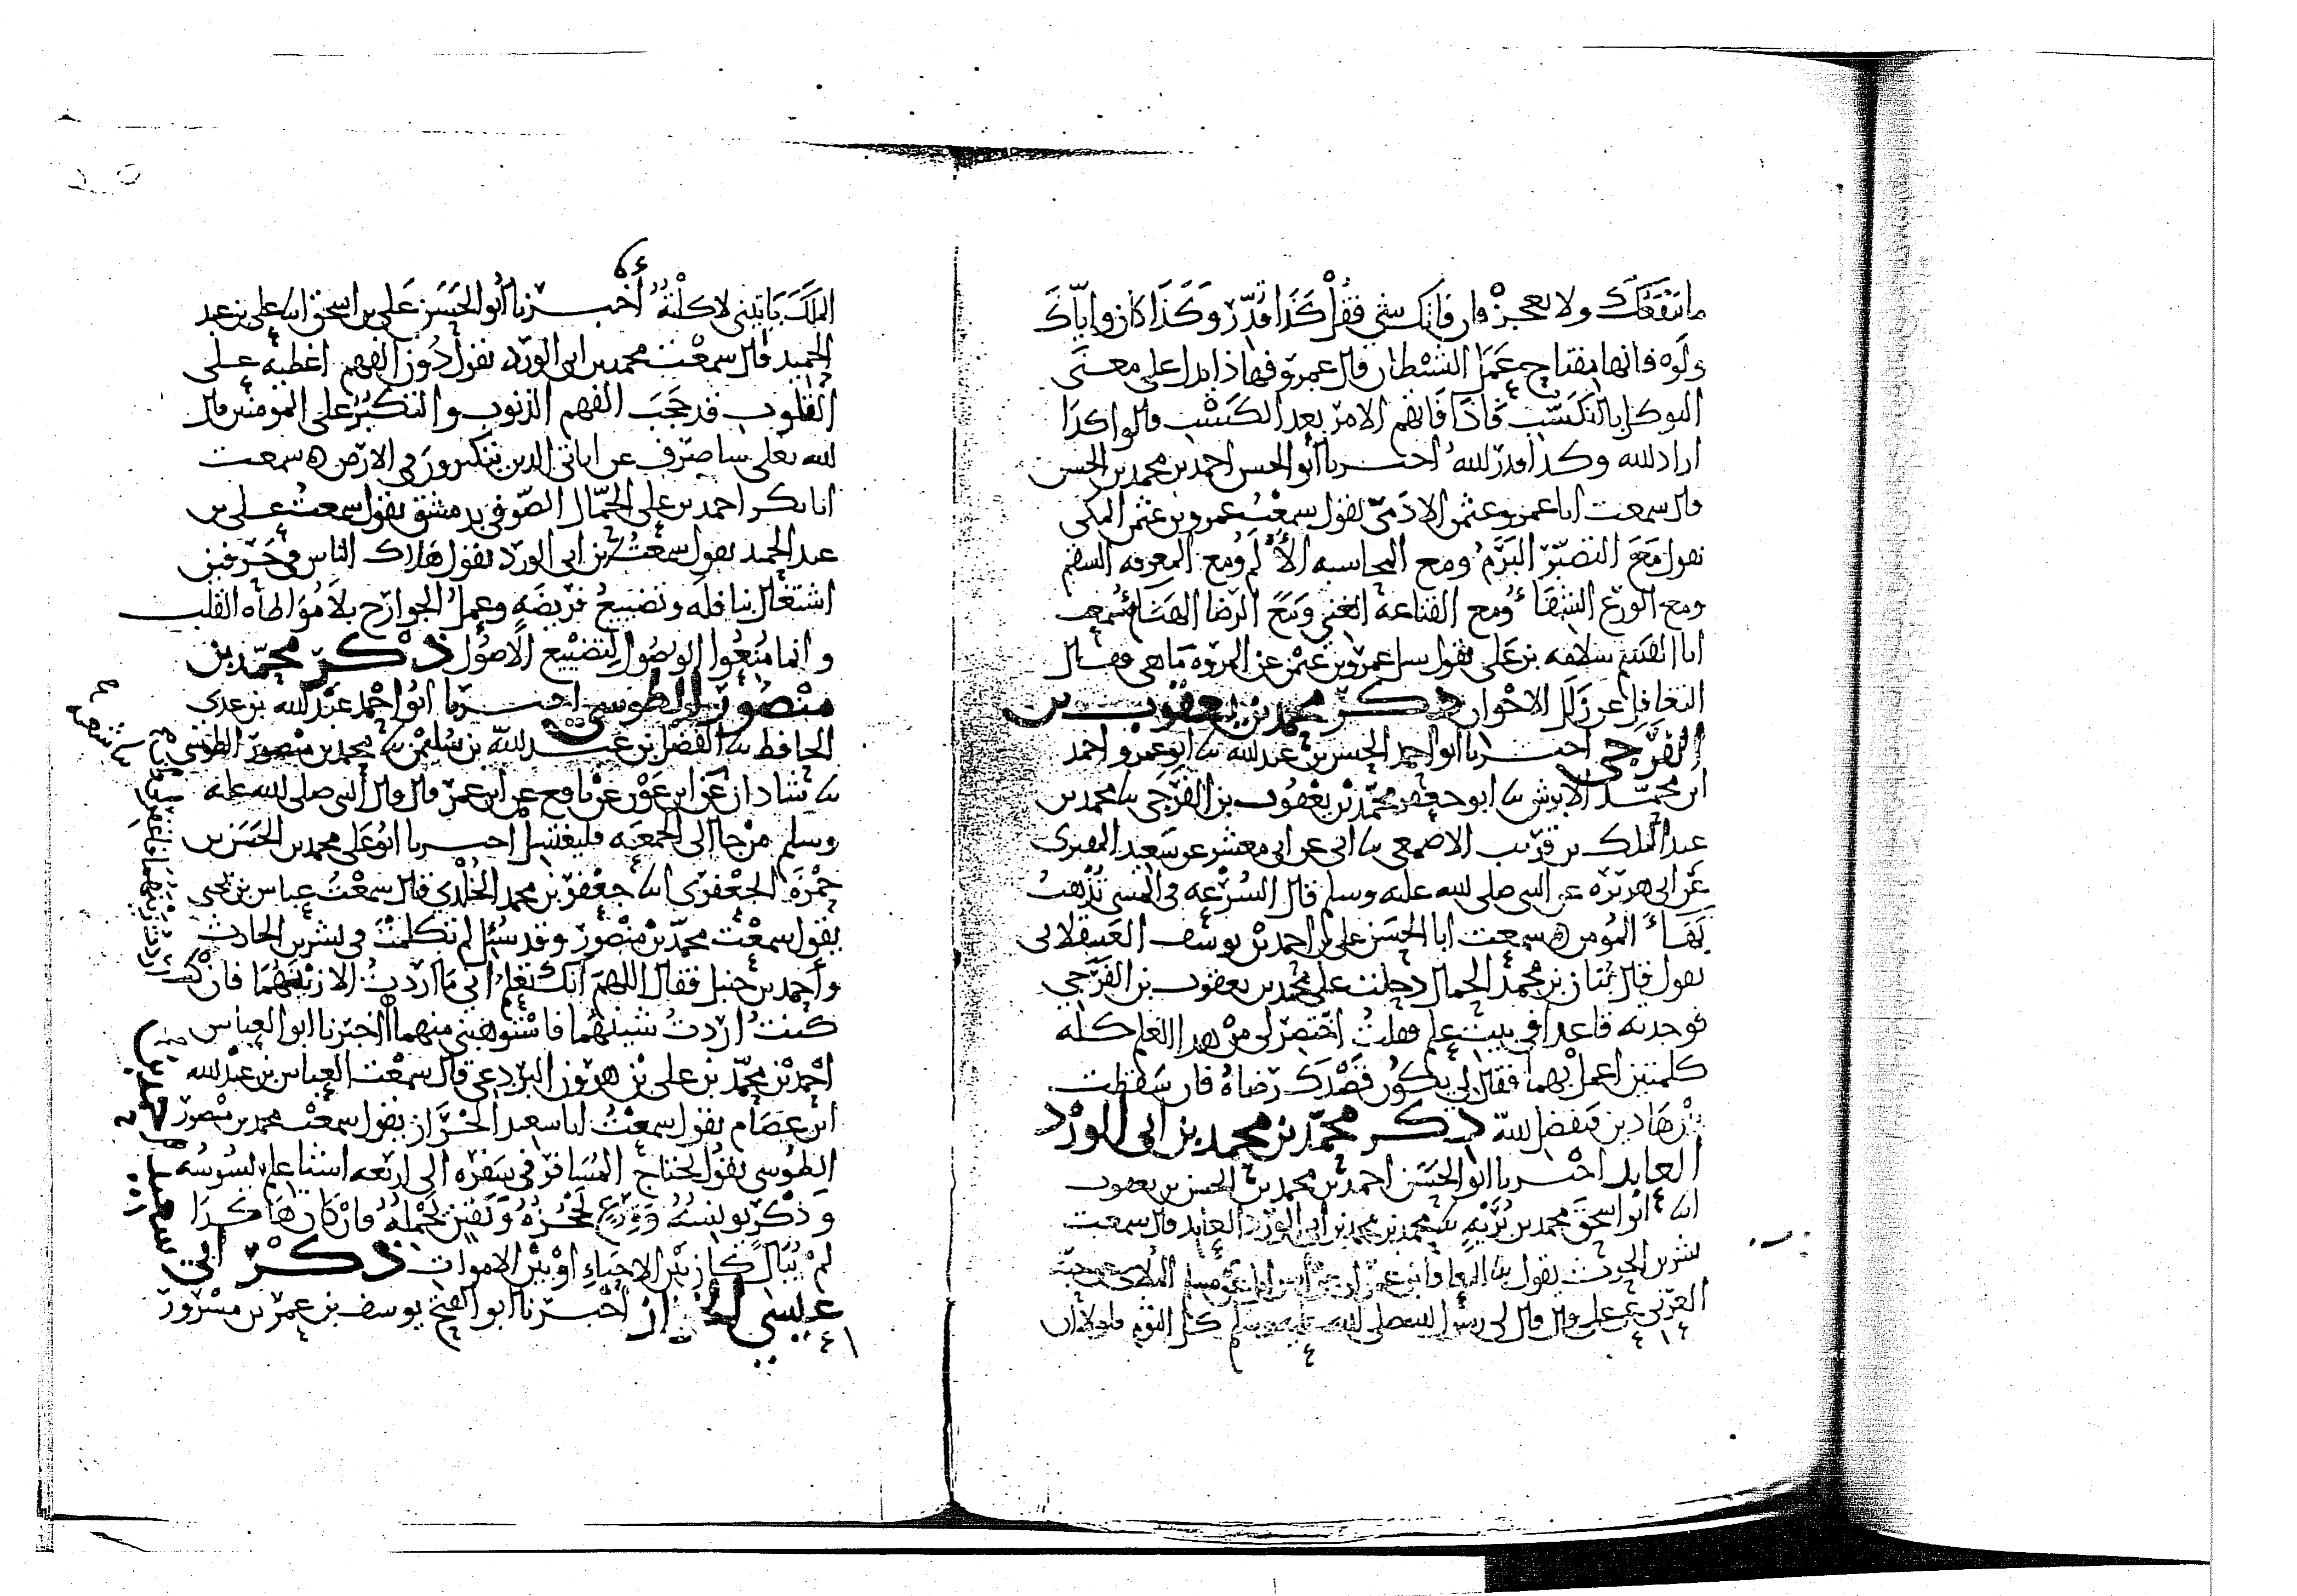 ما ينفعك ولا تعجز فان فاتك شي فقل كذا قدر وكذا كان واياك
ولو فانها مفتاح عمل الشيطان قال عمرو فهاذا يدل على معنى
التوكل بالتكسب فاذا فاتهم الامر بعد الكسب قالوا كذا
اراد الله وكذا قدر الله اخبرنا ابو الحسن احمد بن محمد بن الحسن
قال سمعت ابا عمرو عثمن الادمي يقول سمعت عمرو بن عثمن المكي
يقول مع التصبر البرم ومع المحاسبه الالم ومع المعرفه السقم
ومع الورع الشقاء ومع القناعة الغنى ومع الرضا الهناء سمعت
ابا القسم سلامه بن علي يقول سيل عمرو بن عثمن عن المروه ما هي فقال
التغافل عن زلل الاخوان ذكر محمد بن يعقوب بن
الفرجي اخبرنا ابو احمد الحسن بن عبد الله ثنا ابو عمرو احمد
ابن محمد الابرش ثنا ابو جعفر محمد بن يعقوب بن الفرجي ثنا محمد بن
عبد الملك بن قريب الاصمعي ثنا ابي عن ابي معشر عن سعيد المقبري
عن ابي هريره عن النبي صلى الله عليه وسلم قال السرعه في المشي تذهب
بهاء المومن ه سمعت ابا الحسن علي بن احمد بن يوسف العسقلاني
يقول قال بنان بن محمد الحمال دخلت على محمد بن يعقوب بن الفرجي
فوجدته قاعدا في بيت علم فقلت اختصر لي من هذا العلم كله
كلمتين اعمل بهما فقال لي يكون قصدك رضاه فان سقطت
من هاذين فبفضل الله ذكر محمد بن محمد بن ابي الورد
العابد اخبرنا ابو الحسن احمد بن محمد بن الحسن بن يعقوب
انا ابو اسحق محمد بن ثنا محمد بن محمد بن ابي الورد العابد قال سمعت
بشر بن الحرث يقول ثنا المعافا بن عمران عن عن مسلم الملاي عن حبة
العرني عن علي قال قال لي رسول الله صلى الله عليه وسلم كل الثوم فلولا ان
الملك ياتيني لاكلته اخبرنا ابو الحسن علي بن اسحق انا علي بن عبد
الحميد قال سمعت محمد بن ابي الورد يقول دون الفهم اغطيه على
القلوب قد حجب الفهم الذنوب والتكبر على المومنين قال
الله تعلى ساصرف عن اياتي الذين يتكبرون في الارض ه سمعت
ابا بكر احمد بن علي الجمال الصوفي بدمشق يقول سمعت علي بن
عبد الحميد يقول سمعت بن ابي الورد يقول هلاك الناس في حرفين
اشتغال بنافله وتضييع فريضه وعمل الجوارح بلا مواطاه القلب
وانما منعوا الوصول لتضييع الاصول ذكر محمد بن
منصور الطوسي اخبرنا ابو احمد عبد الله بن عدي
الحافظ ثنا الفضل بن عبد الله بن سليمن ثنا محمد بن منصور الطوسي
ثنا شاذان عن ابن عون عن نافع عن ابن عمر قال قال النبي صلى الله عليه
وسلم من جا الى الجمعه فليغتسل اخبرنا ابو علي محمد بن الحسن بن
حمزة الجعفري انا جعفر بن محمد الخلدي قال سمعت عباس بن يحيى
يقول سمعت محمد بن منصور وقد سئل لم تكلمت في بشر بن الحارث
واحمد بن حنبل فقال اللهم انك تعلم اني ما اردت الا زينهما فان كنت
كنت اردت شينهما فاستوهبني منهما اخبرنا ابو العباس
احمد بن محمد بن علي بن هرون البردعي قال سمعت العباس بن عبد الله
ابن عصام يقول سمعت ابا سعيد الخراز يقول سمعت محمد بن منصور
الطوسي يقول يحتاج المسافر في سفره الى اربعه اشيا علم يسوسه
وذكر يونسه وورع يحجزه ويقين يحمله فان كان هاكذا
لم يبال كان بين الاحياء او بين الاموات ذكر ابي
عيسى اخبرنا ابو الفتح يوسف بن عمر بن مسرور